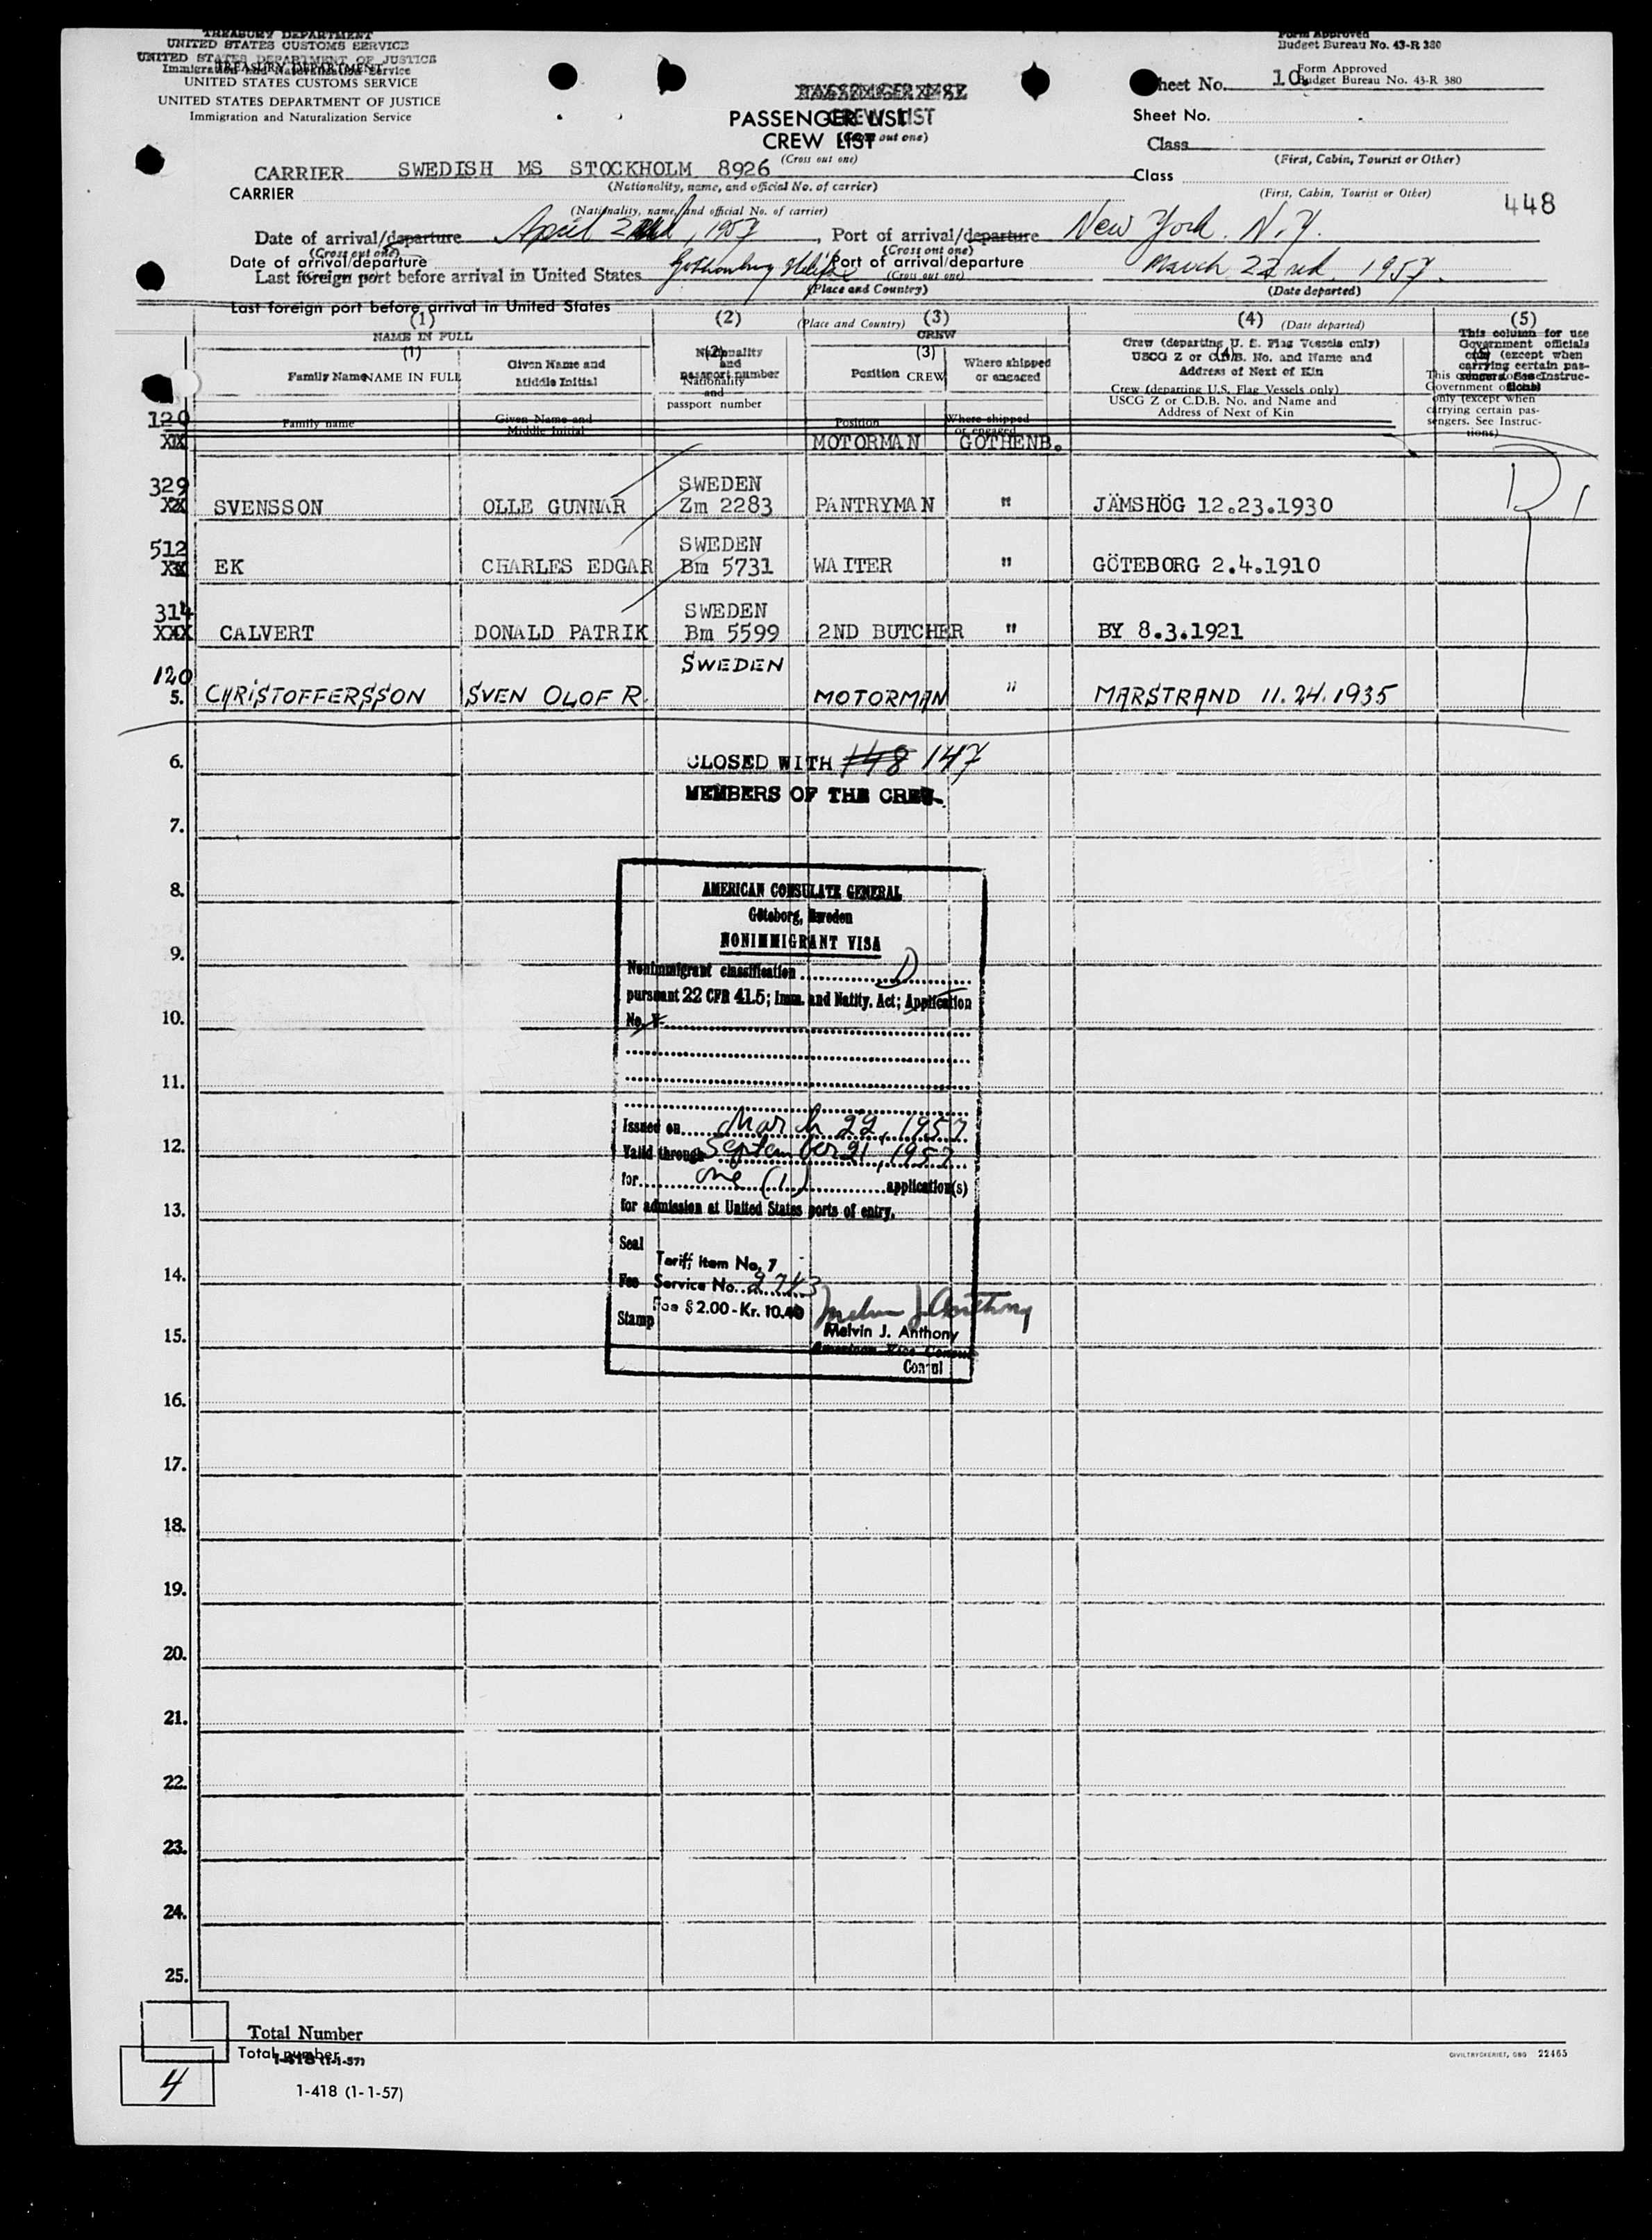 TREASURY DEPARTMENT
UNITED STATES CUSTOMS SERVICE
UNITED STATES DEPARTMENT OF JUSTICE
Immigration and Naturalization Service
TREASURY DEPARTMENT
UNITED STATES CUSTOMS SERVICE
UNITED STATES DEPARTMENT OF JUSTICE
Immigration and Naturalization Service
Form Approved
Budget Bureau No. 43-R 380
Form Approved
Budget Bureau No. 43-R 380
PASSENGER LIST
CREW LIST
(Cross out one)
PASSENGER LIST
CREW LIST
(Cross out one)
Sheet No. 10.
Sheet No.
Class
(First, Cabin, Tourist or Other)
Class
(First, Cabin, Tourist or Other)
448
CARRIER SWEDISH MS STOCKHOLM 8926
(Nationality, name, and official No. of carrier)
CARRIER
(Nationality, name, and official No. of carrier)
Date of arrival/departure April 2nd, 1957, Port of arrival/departure New York. N.Y.
(Cross out one) (Cross out one)
Date of arrival/departure Port of arrival/departure
(Cross out one)
Last foreign port before arrival in United States Gothenburg Halifax March 22nd 1957.
(Place and Country) (Date departed)
Last foreign port before arrival in United States
(Place and Country) (Date departed)
(1) (2) (3) (4) (5)
NAME IN FULL
Family Name
Given Name and Middle Initial
Nationality and passport number
CREW
Position
Where shipped or engaged
Crew (departing U. S. Flag Vessels only)
USCG Z or C.D.B. No. and Name and
Address of Next of Kin
This column for use Government officials only (except when carrying certain passengers. See Instructions)
(1) (2) (3) (4)
NAME IN FULL
Family name
Given Name and Middle Initial
Nationality and passport number
CREW
Position
Where shipped or engaged
Crew (departing U.S. Flag Vessels only)
USCG Z or C.D.B. No. and Name and
Address of Next of Kin
This column for use Government officials only (except when carrying certain passengers. See Instructions)
120
MOTORMAN GOTHENB.
329 SWEDEN
SVENSSON OLLE GUNNAR Zm 2283 PANTRYMAN " JÄMSHÖG 12.23.1930
D
512 SWEDEN
EK CHARLES EDGAR Bm 5731 WAITER " GÖTEBORG 2.4.1910
314 SWEDEN
CALVERT DONALD PATRIK Bm 5599 2ND BUTCHER " BY 8.3.1921
120 SWEDEN
5. CHRISTOFFERSSON SVEN OLOF R. MOTORMAN " MARSTRAND 11.24.1935
6. CLOSED WITH 148 147
MEMBERS OF THE CREW
7.
8.
AMERICAN CONSULATE GENERAL
Göteborg, Sweden
NONIMMIGRANT VISA
9.
Nonimmigrant classification D
pursuant 22 CFR 41.5; Imm. and Natlty. Act; Application
10.
No. V-
11.
Issued on March 22, 1957
12.
Valid through September 21, 1957
for one (1) application(s)
13.
for admission at United States ports of entry.
Seal
Tariff Item No. 7
14.
Fee Service No. 2743
Fee $2.00-Kr. 10.40
Stamp
Melvin J Anthony
Melvin J. Anthony
15.
American Vice Consul
Consul
16.
17.
18.
19.
20.
21.
22.
23.
24.
25.
Total Number
Total number
I-418 (1-1-57)
4
1-418 (1-1-57)
CIVILTRYCKERIET, GBG 22465